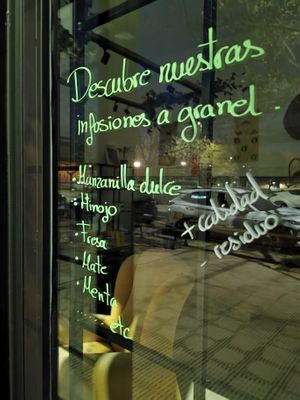 Descubre nuestras
infusiones a granel.
• Manzanilla dulce
• Hinojo
• Fresa
• Mate
• Menta
..... etc
+ calidad
- residuo